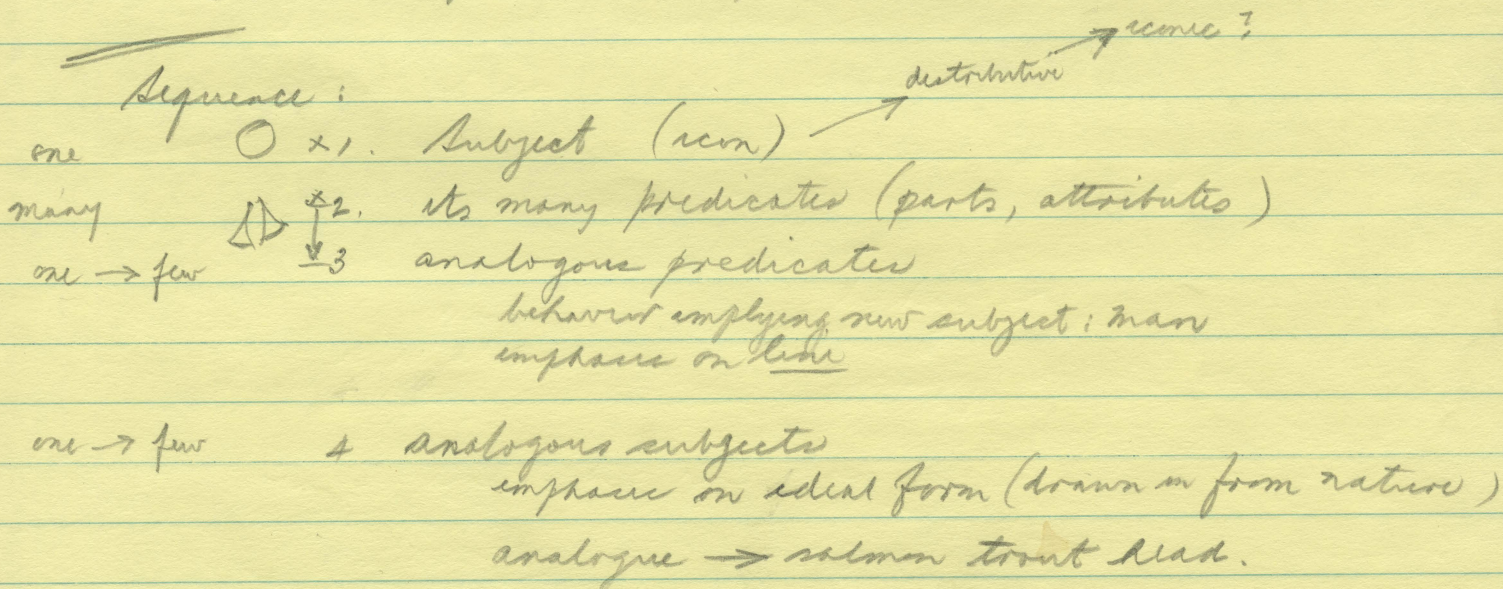 iconic?
distributive
Sequence:
one x 1. Subject (icon)
many x 2. its many predicates (parts, attributes)
one → few - 3 analogous predicates
behavior implying new subject: man
emphasis on line
one → few 4 analogous subjects
emphasis on ideal form (drawn in from nature)
analogue → salmon trout head.